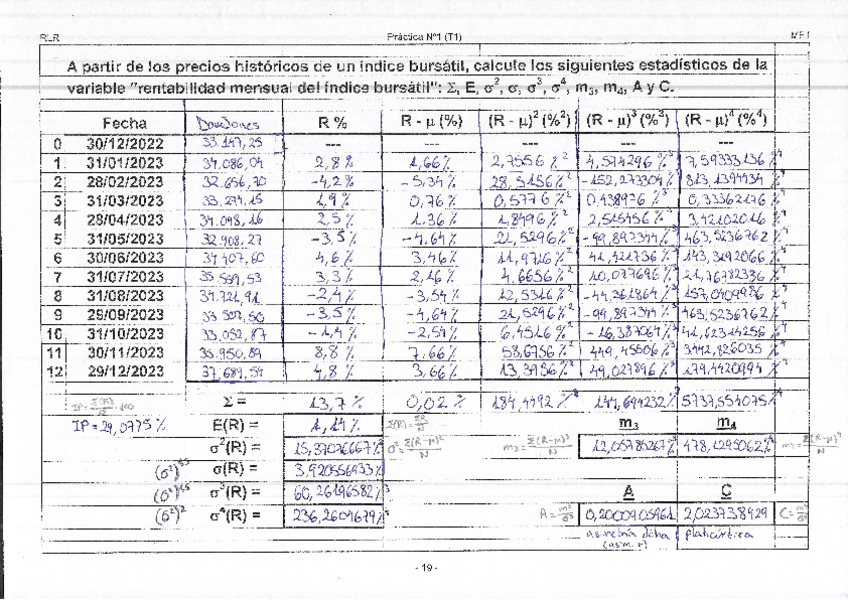 RLR Práctica Nº1 (T1) MFI
A partir de los precios históricos de un índice bursátil, calcule los siguientes estadísticos de la
variable "rentabilidad mensual del índice bursátil": Σ, E, σ², σ, σ³, σ⁴, m₃, m₄, A y C.
Fecha DowJones R % R - μ (%) (R - μ)² (%²) (R - μ)³ (%³) (R - μ)⁴ (%⁴)
0 30/12/2022 33.147,25 --- --- --- --- ---
1 31/01/2023 34.086,04 2,8% 1,66% 2,7556%² 4,574296%³ 7,59333136%⁴
2 28/02/2023 32.656,70 -4,2% -5,34% 28,5156%² -152,273304%³ 813,1394434%⁴
3 31/03/2023 33.274,15 1,9% 0,76% 0,5776%² 0,438976%³ 0,33362176%⁴
4 28/04/2023 34.098,16 2,5% 1,36% 1,8496%² 2,515456%³ 3,42102016%⁴
5 31/05/2023 32.908,27 -3,5% -4,64% 21,5296%² -99,897344%³ 463,5236762%⁴
6 30/06/2023 34.407,60 4,6% 3,46% 11,9716%² 41,421736%³ 143,3192066%⁴
7 31/07/2023 35.559,53 3,3% 2,16% 4,6656%² 10,077696%³ 21,76782336%⁴
8 31/08/2023 34.721,91 -2,4% -3,54% 12,5316%² -44,361864%³ 157,0409986%⁴
9 29/09/2023 33.507,50 -3,5% -4,64% 21,5296%² -99,897344%³ 463,5236762%⁴
10 31/10/2023 33.052,87 -1,4% -2,54% 6,4516%² -16,387064%³ 41,62314256%⁴
11 30/11/2023 35.950,89 8,8% 7,66% 58,6756%² 449,45506%³ 3442,826035%⁴
12 29/12/2023 37.689,54 4,8% 3,66% 13,3956%² 49,027896%³ 179,4420994%⁴
Σ = 13,7% 0,02% 184,4492%² 144,694232%³ 5737,554075%⁴
IP = Σ(R)/σ · 100
IP = 29,0775% E(R) = 1,14% E(R) = ΣR/N m₃ m₄
σ²(R) = 15,37076667%² σ² = Σ(R-μ)²/N m₃ = Σ(R-μ)³/N 12,05785267%³ 478,1295062%⁴ m₄ = Σ(R-μ)⁴/N
(σ²)^0,5 σ(R) = 3,920556933%
(σ²)^1,5 σ³(R) = 60,26196582%³ A C
(σ²)² σ⁴(R) = 236,2604679%⁴ A = m³/σ³ 0,2000905961 2,023738929 C = m⁴/σ⁴
asimetría dcha platicúrtica
(asim. +)
- 19 -